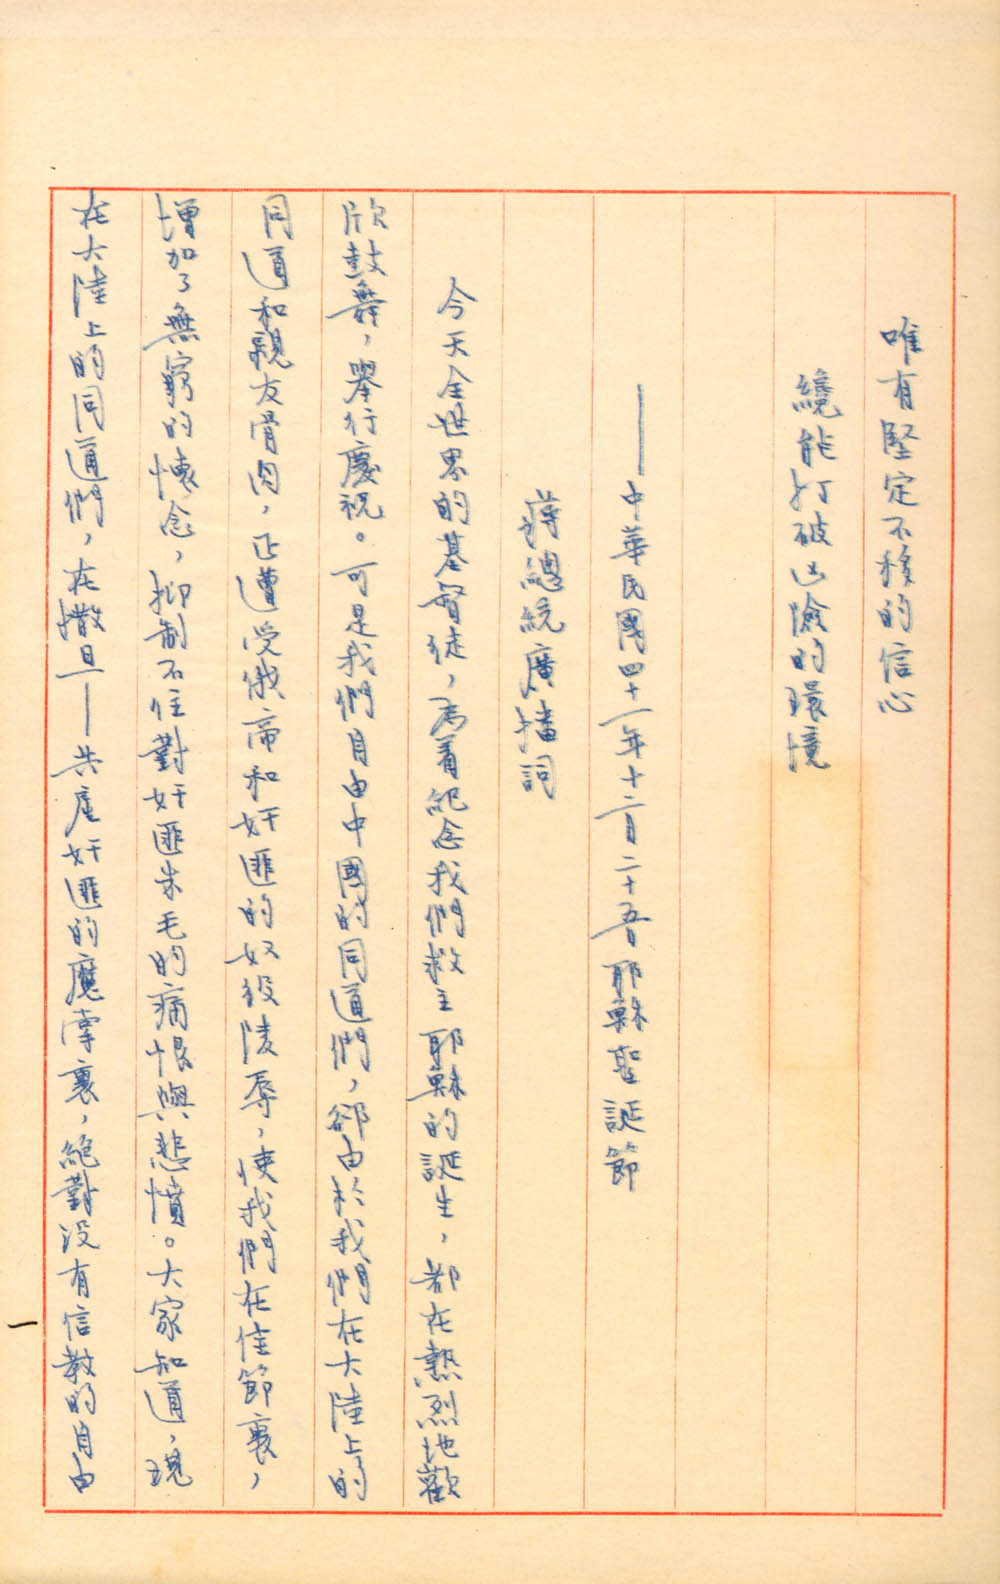 唯有堅定不移的信心
纔能打破凶險的環境
——中華民國四十一年十二月二十五日耶穌聖誕節
蔣總統廣播詞
今天全世界的基督徒，為着紀念我們救主耶穌的誕生，都在熱烈地歡
欣鼓舞，舉行慶祝。可是我們自由中國的同道們，卻由於我們在大陸上的
同道和親友骨肉，正遭受俄帝和奸匪的奴役陵辱，使我們在佳節裏，
增加了無窮的懷念，抑制不住對奸匪朱毛的痛恨與悲憤。大家知道，現
在大陸上的同道們，在撒旦——共產奸匪的魔掌裏，絕對沒有信教的自由
一